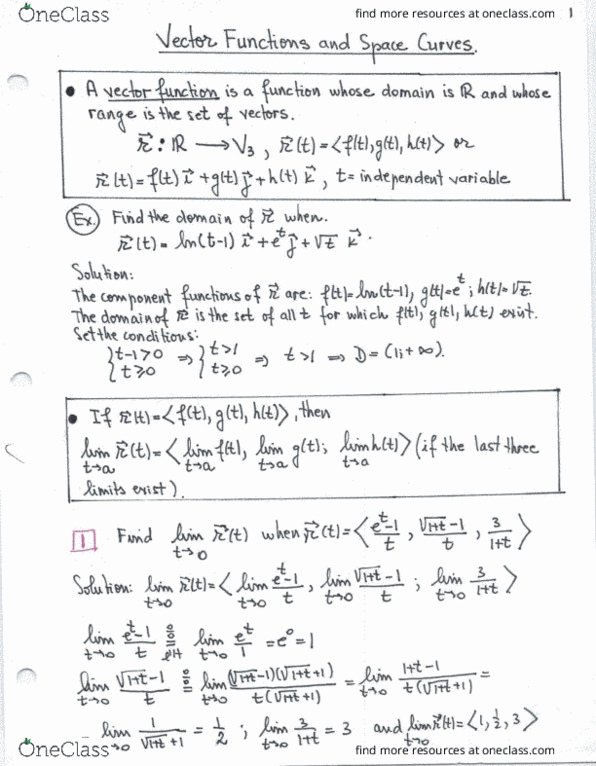 OneClass
find more resources at oneclass.com
1
Vector Functions and Space Curves.
• A vector function is a function whose domain is ℝ and whose
range is the set of vectors.
r⃗ : ℝ → V₃ , r⃗(t) = ⟨f(t), g(t), h(t)⟩ or
r⃗(t) = f(t) i⃗ + g(t) j⃗ + h(t) k⃗ , t = independent variable
Ex. Find the domain of r⃗ when.
r⃗(t) = ln(t-1) i⃗ + e^t j⃗ + √t k⃗ .
Solution:
The component functions of r⃗ are: f(t)=ln(t-1), g(t)=e^t ; h(t)=√t.
The domain of r⃗ is the set of all t for which f(t), g(t), h(t) exist.
Set the conditions:
{ t-1>0 ⇒ { t>1 ⇒ t>1 ⇒ D = (1; +∞).
{ t≥0 { t≥0
• If r⃗(t) = ⟨f(t), g(t), h(t)⟩, then
lim t→a r⃗(t) = ⟨ lim t→a f(t), lim t→a g(t); lim t→a h(t)⟩ (if the last three
limits exist).
1 Find lim t→0 r⃗(t) when r⃗(t) = ⟨ (e^t-1)/t , (√(1+t)-1)/t , 3/(1+t) ⟩
Solution: lim t→0 r⃗(t) = ⟨ lim t→0 (e^t-1)/t , lim t→0 (√(1+t)-1)/t ; lim t→0 3/(1+t) ⟩
lim t→0 (e^t-1)/t =(0/0, l'H) lim t→0 e^t/1 = e^0 = 1
lim t→0 (√(1+t)-1)/t =(0/0) lim t→0 (√(1+t)-1)(√(1+t)+1)/(t(√(1+t)+1)) = lim t→0 (1+t-1)/(t(√(1+t)+1)) =
= lim t→0 1/(√(1+t)+1) = 1/2 ; lim t→0 3/(1+t) = 3 and lim t→0 r⃗(t) = ⟨1, 1/2, 3⟩
OneClass
find more resources at oneclass.com